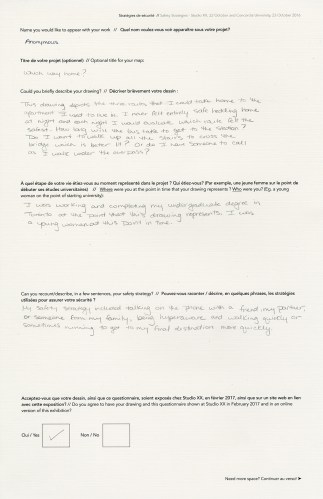 Stratégies de sécurité // Safety strategies - Studio XX,
Name you would like to appear with your work // Quel nom voulez-vous voir apparaître sous votre projet?
Anonymous
Titre de votre projet (optionnel) // Optional title for your map:
Which way home?
Could you briefly describe your drawing? // Décrivez brièvement votre dessin :
This drawing depicts the nine routes that I would take home to the
apartment I used to live in. I never felt entirely safe walking home
at night and each night I would evaluate which route felt the
safest. How long will the bus take to get to the station?
Do I want to walk up all the stairs to cross the
bridge which is better lit? Or do I have someone to call
as I walk under the overpass?
A quel étape de votre vie étiez-vous au moment représenté dans le projet ? Qui étiez-vous? (Par exemple, une jeune femme sur le point de
débuter ses études universitaires) // Where were you at the point in time that your drawing represents? Who were you? (Eg. a young
woman on the point of starting university):
I was working and completing my undergraduate degree in
Toronto at the point that this drawing represents. I was
a young woman at this point in time.
Can you recount/describe, in a few sentences, your safety strategy? // Pouvez-vous raconter / décrire, en quelques phrases, les stratégies
utilisées pour assurer votre sécurité ?
My safety strategy included talking on the phone with a friend, my partner,
or someone from my family, being hyperaware and walking quickly or
sometimes running to get to my final destination more quickly.
Acceptez-vous que votre dessin, ainsi que ce questionnaire, soient exposés chez Studio XX, en février 2017, ainsi que sur un site web en lien
avec cette exposition? // Do you agree to have your drawing and this questionnaire shown at Studio XX in February 2017 and in an online
version of this exhibition?
Oui / Yes ✓ Non / No
Need more space? Continue au verso! ➤